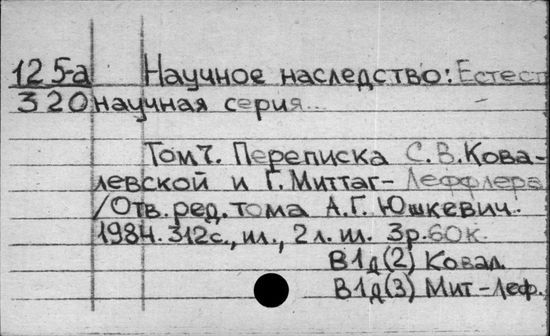 125-а Научное наследство: Естест
320 научная серия...
Том 7. Переписка С.В. Кова-
левской и Г. Миттаг-Леффлера
/Отв. ред. тома А.Г. Юшкевич.
1984. 312с., ил., 2 л. ил. 3р. 60к.
В1д(2) Ковал.
В1д(3) Мит-Леф.